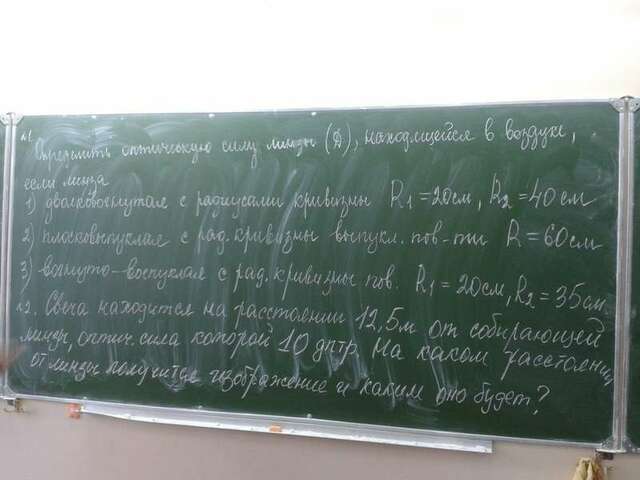 №1
Определить оптическую силу линзы (D), находящейся в воздухе,
если линза
1) двояковогнутая с радиусами кривизны R₁ = 20 см, R₂ = 40 см
2) плосковыпуклая с рад. кривизны выпукл. пов-ти R = 60 см
3) вогнуто-выпуклая с рад. кривизны пов. R₁ = 20 см, R₂ = 35 см
№2. Свеча находится на расстоянии 12,5 м от собирающей
линзы, оптич. сила которой 10 дптр. На каком расстоянии
от линзы получится изображение и каким оно будет?